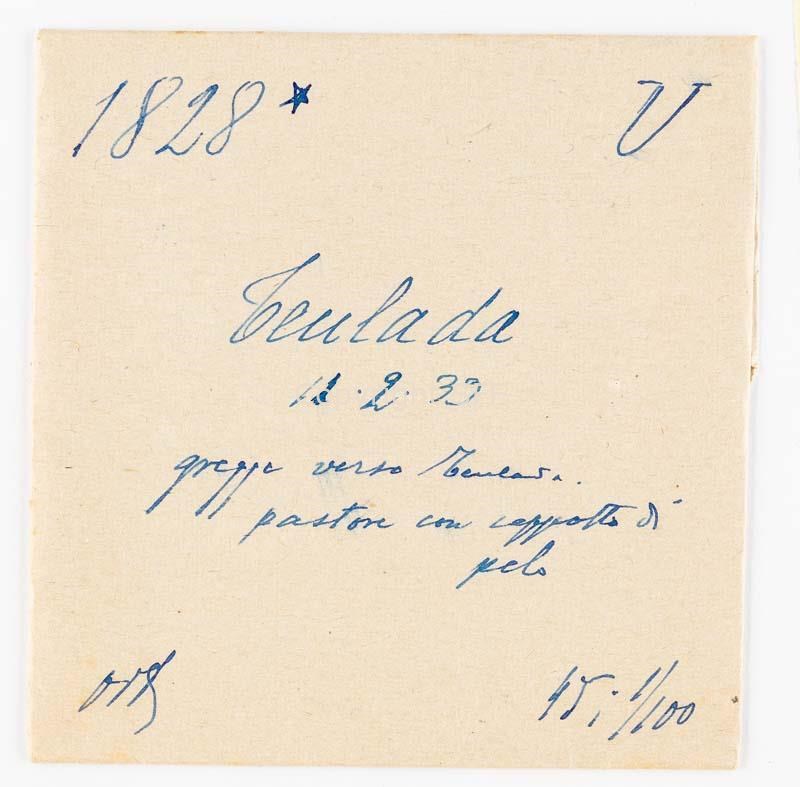 1828* V
Teulada
12.2.33
gregge verso Teulada.
pastore con cappotto di
pelo
45; 1/100